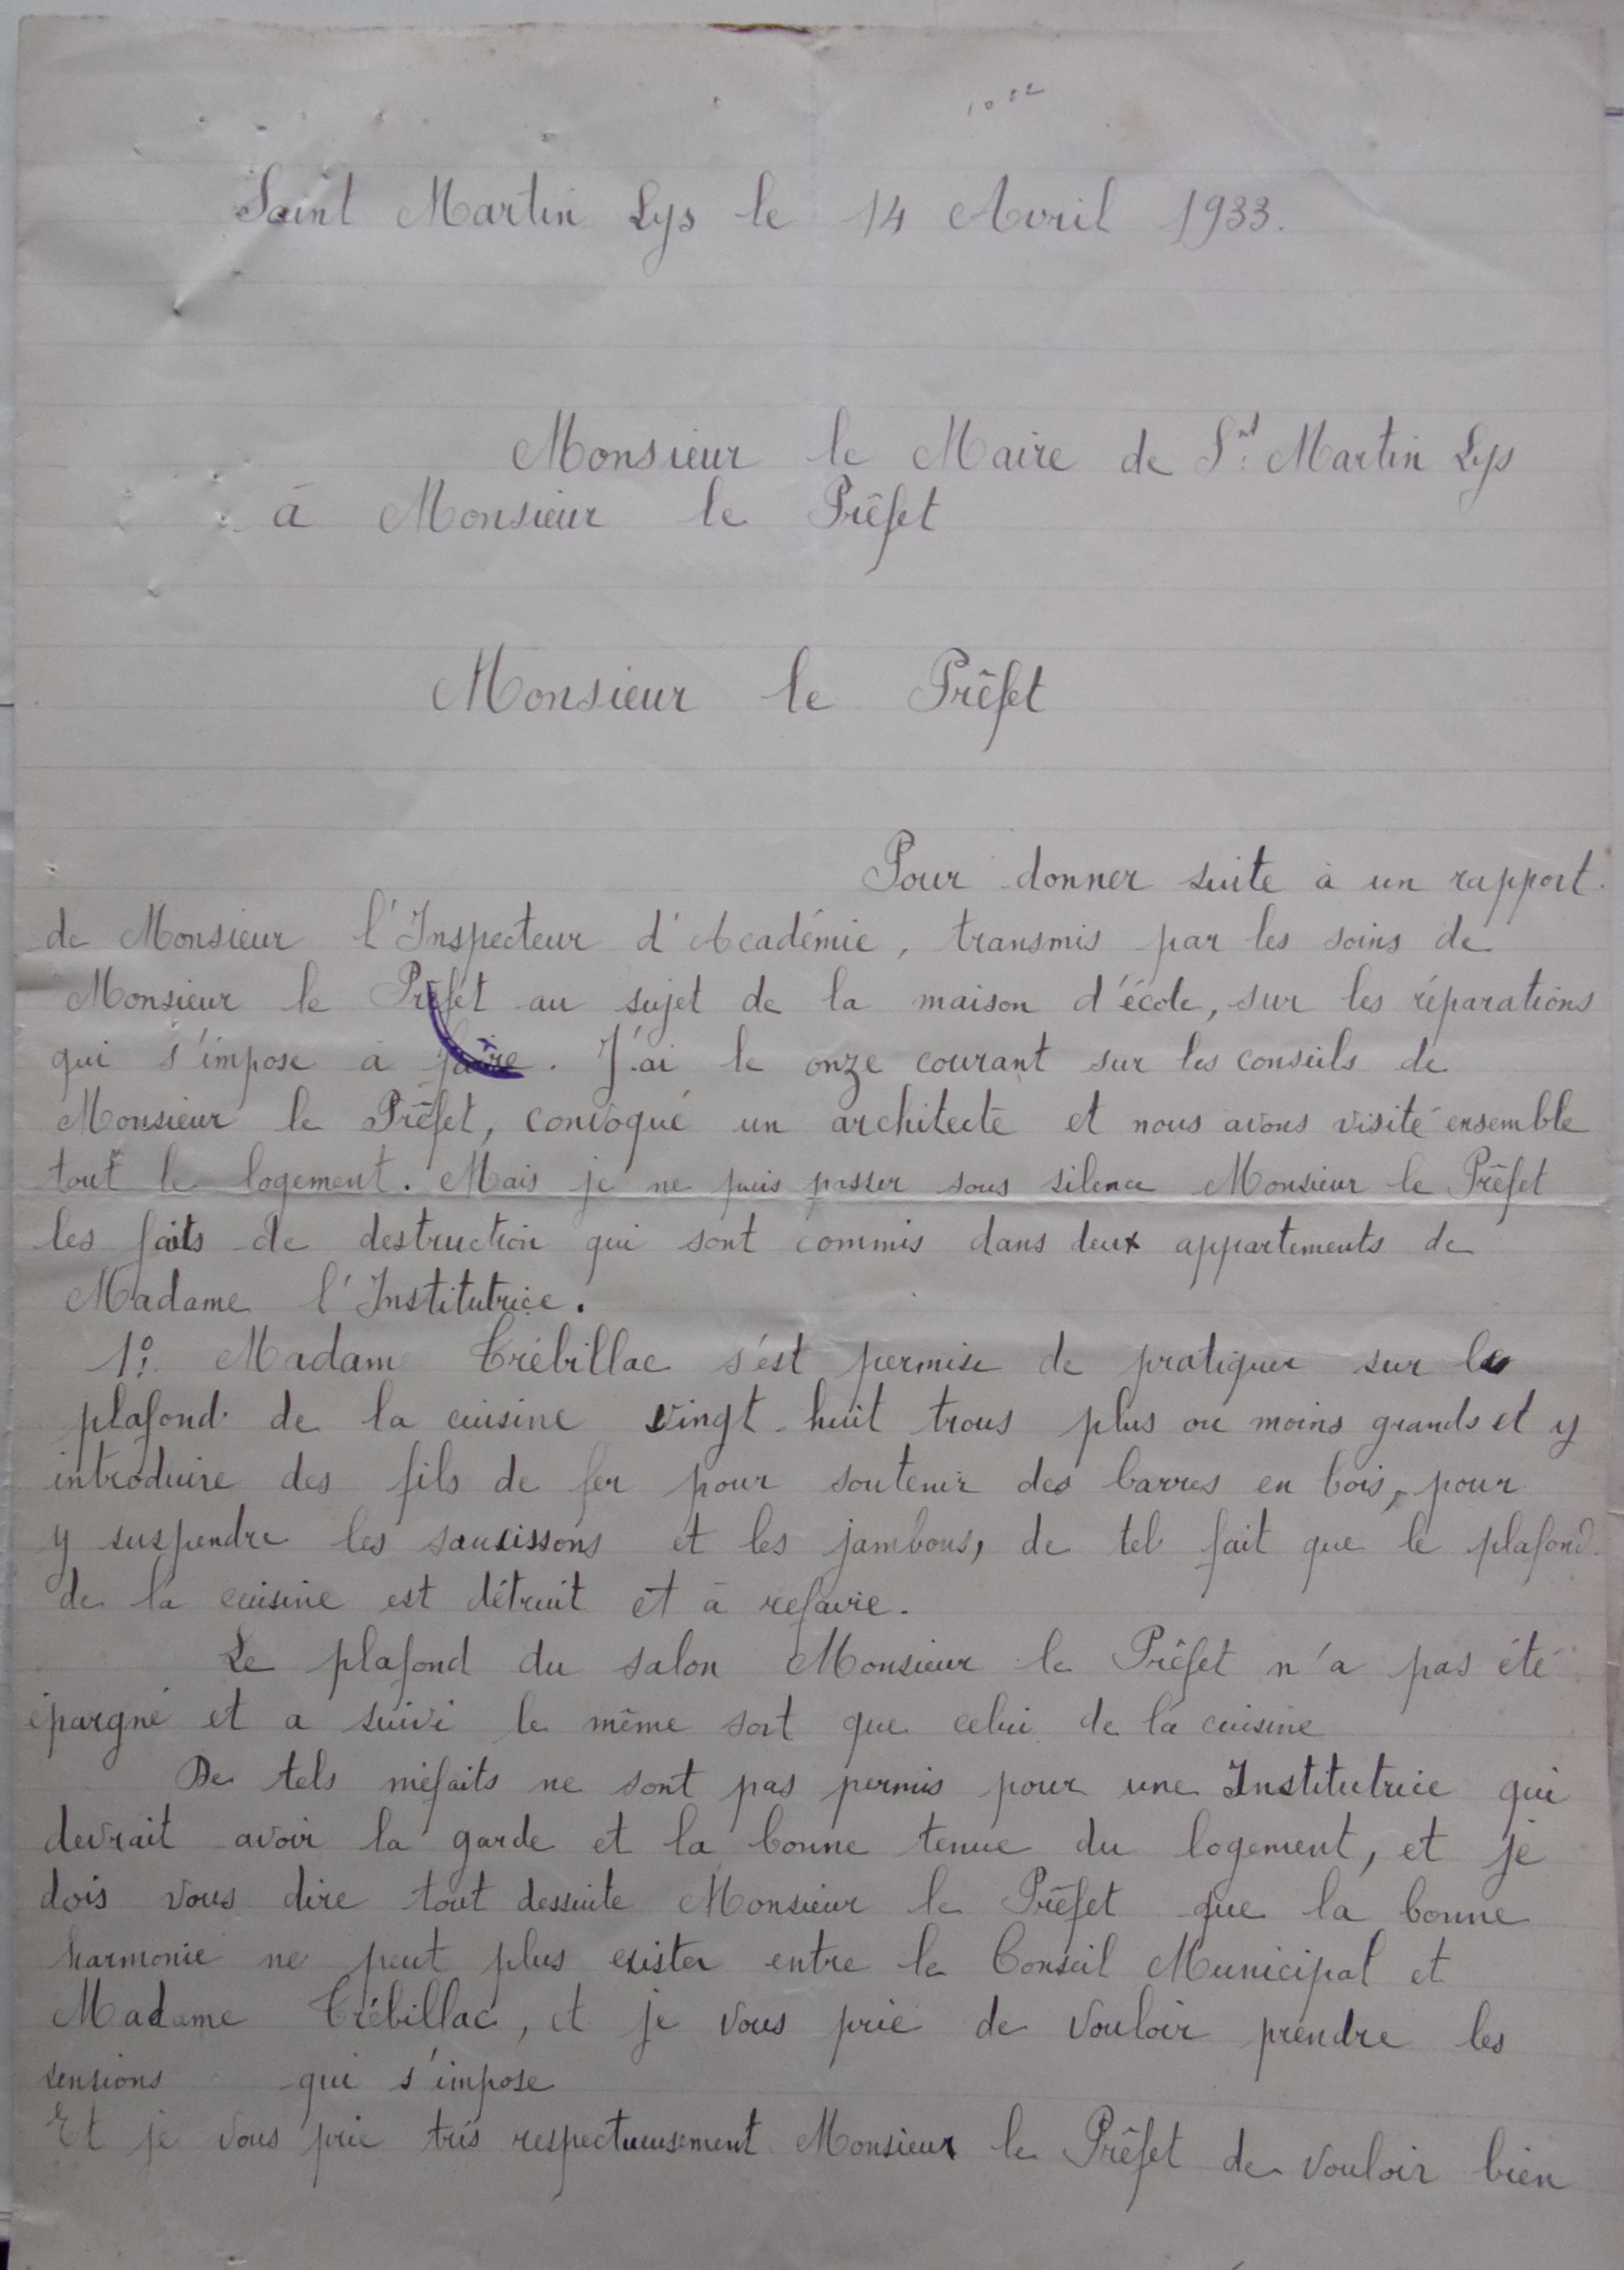 Saint Martin Lys le 14 Avril 1933.
Monsieur le Maire de Snt Martin Lys
à Monsieur le Prêfet
Monsieur le Prêfet
Pour donner suite à un rapport
de Monsieur l'Inspecteur d'Académie, transmis par les soins de
Monsieur le Prêfet au sujet de la maison d'école, sur les réparations
qui s'impose à faire. J'ai le onze courant sur les conseils de
Monsieur le Prêfet, convoqué un architecte et nous avons visité ensemble
tout le logement. Mais je ne puis passer sous silence Monsieur le Prêfet
les faits de destruction qui sont commis dans deux appartements de
Madame l'Institutrice.
1º. Madame Trébillac s'est permise de pratiquer sur le
plafond de la cuisine vingt-huit trous plus ou moins grands et y
introduire des fils de fer pour soutenir des barres en bois, pour
y suspendre les saucissons et les jambons, de tel fait que le plafond
de la cuisine est détruit et à refaire.
Le plafond du salon Monsieur le Prêfet n'a pas été
épargné et a suivi le même sort que celui de la cuisine
De tels méfaits ne sont pas permis pour une Institutrice qui
devrait avoir la garde et la bonne tenue du logement, et je
dois vous dire tout dessuite Monsieur le Prêfet que la bonne
harmonie ne peut plus exister entre le Conseil Municipal et
Madame Trébillac, et je vous prie de vouloir prendre les
sensions qui s'impose
Et je vous prie très respectueusement Monsieur le Prêfet de vouloir bien